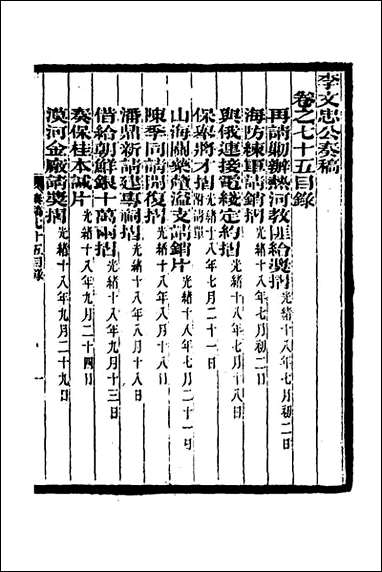 李文忠公奏稿
卷之七十五目錄
再請勦辦熱河教匪給獎摺光緒十八年七月初二日
海防練軍請銷摺光緒十八年七月初二日
與俄連接電綫定約摺光緒十八年七月十八日
保舉將才摺附清單光緒十八年七月二十一日
山海關藥釐溢支請銷片光緒十八年七月二十一日
陳季同請開復摺光緒十八年八月十八日
潘鼎新請建專祠摺光緒十八年八月十八日
借給朝鮮銀十萬兩摺光緒十八年九月十三日
奏保桂本誠片光緒十八年九月二十四日
漠河金廠請獎摺光緒十八年九月二十九日
奏稿七十五目錄
一